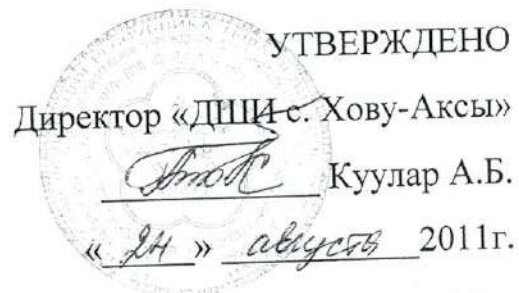 УТВЕРЖДЕНО
Директор «ДШИ с. Хову-Аксы»
Куулар А.Б.
« 24 » августа 2011г.